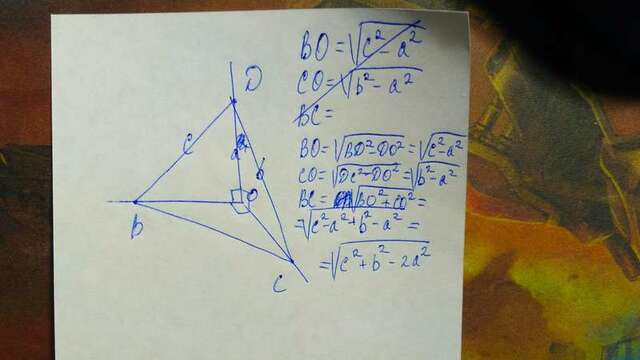 BO = √c² - a²
CO = √b² - a²
BC =
BO = √BD² - DO² = √c² - a²
CO = √DC² - DO² = √b² - a²
BC = √BO² + CO² =
= √c² - a² + b² - a² =
= √c² + b² - 2a²
D
c
a
b
O
B
C